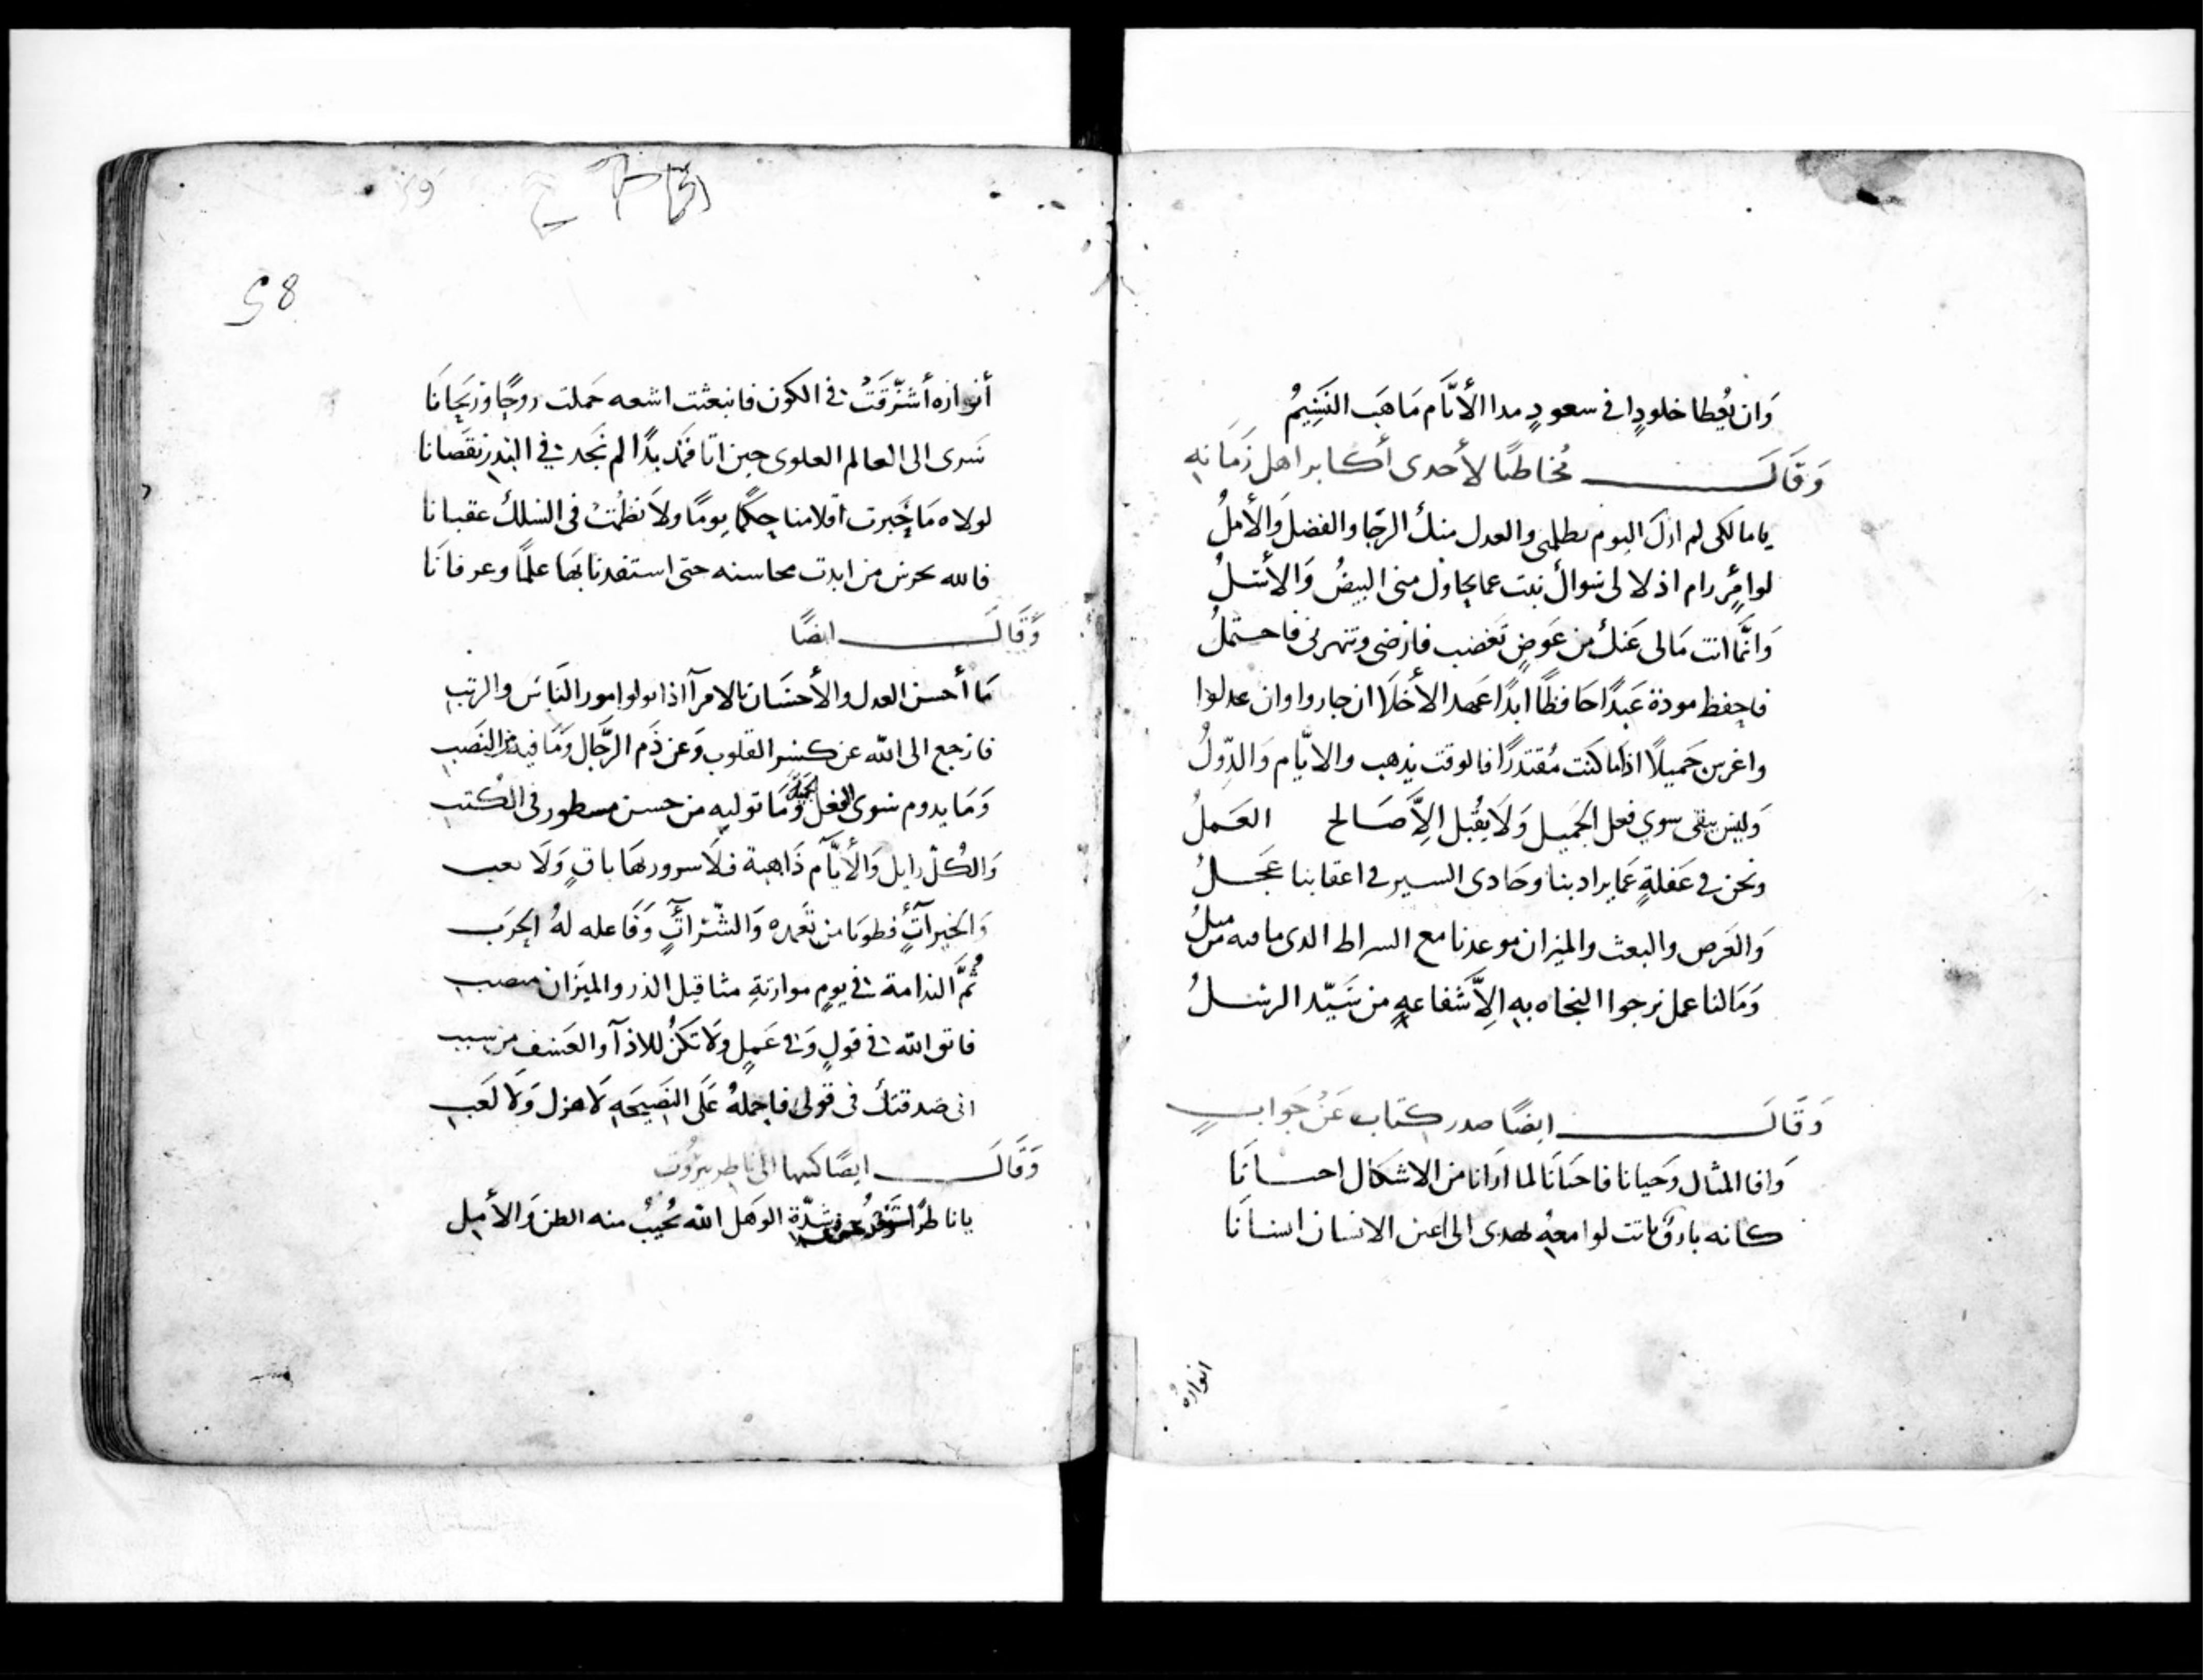 وَان يُعطا خلودٍا في سعودٍ مدا الأنَّام مَا هَب النَسِيمُ
وَقَالَ مُخاطبًا لأحدى أكابر اهل زَمَانهِ
يا مالكى لم ازلَ اليوم والعدل منك الرجَا والفضلَ وَالأملُ
لو رام اذلالى سواك نبت عما يحاول منى البيضُ وَالأسَلُ
وَانَّما انت مَالى عَنك من عَوضٍ تغضب فارضى وتنهرنى فاحتملُ
فاحفظ مودة عَبدًا حَافظًا ابدًا عَهد الأخلَا ان جاروا وان عدلوا
واغرس جَميلًا اذا ما كنت مُقتدرًا فالوقت يذهب والايَّام وَالدّولُ
وَليس يبقى سوي فعل الجَميل وَلَا يقبل الاَّ صَالح العَملُ
ونحن في غفلةٍ عَما يراد بنا وحَادى السير في اعقابنا عَجلُ
وَالعَرض والبعث والميزان موعدنا مع السراط الدى ما فيه من ميلُ
وَمَا لنا عمل نرجوا النجاه بهِ الاَّ شَفاعهٍ من سَيّد الرسلُ
وَقَالَ ايضًا صدر كتاب عَن جَوابٍ
وَافا المثال وَحيانا فاحيَانَا لما ارَانا من الاشكال احسَانَا
كانه بارقٌ باتت لوامعهِ تهدى الى اعين الانسان انسانَا
انواره
58
أنواره أشرَقَتُ في الكون فانبعثت اشعه حَملت روحًا وَريَحانَا
سَرى الى العالم العلوى حين اتا فمذ بدًا لم نَجد في البَدر نقصَانا
لولاه مَا حَبرت اقلامنا حِكَمًا يومًا ولَا نظَمُت في السلك عقيانا
فالله يحرس من ابدت محاسنه حتى استفدنا بهَا علمًا وعرفانَا
وَّقَالَ ايضًا
مَا أحسن العدل والأحسَان بالامرآ اذا تولوا امور النَاسَ والرتب
فارجع الى الله عن كسر القلوب وَعن ذَم الرّجَال وَمَا فيه من النصَب
وَمَا يدوم سوى الفعل وَمَا توليه من حسن مسطور في الكُتب
وَالكُلّ زايل وَالأيَّام ذَاهبة فلَا سرورهَا باقٍ وَلَا تعب
ثُمَّ الندامة في يومٍ موازنةِ مثاقيل الذر والميزان منصب
فاتق الله في قولٍ وَفي عَملٍ وَلَا تكنُ للاذآ والعَسف من سبب
انى صدقتك في قولى فاحملهُ عَلَى النصَيحَهِ لَا هزل وَلَا لَعب
وَقَالَ ايضًا كتبها الى ناظر بيرُوت
يا ناظرًا شدّة الوَهل الله يُحَيبُ منه الظن وَالأمل